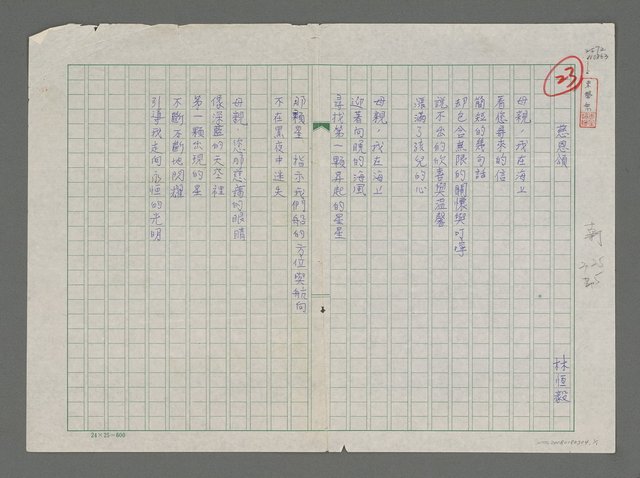 23
慈恩頌
林恒毅
母親，我在海上
看您寄來的信
簡短的幾句話
却包含無限的關懷與叮嚀
說不出的欣喜與溫馨
漲滿了孩兒的心
母親，我在海上
迎著向晚的海風
尋找第一顆昇起的星星
那顆星 指示我們船的方位與航向
不在黑夜中迷失
母親，您那慈藹的眼睛
像深藍的天空裡
第一顆出現的星
不斷不斷地閃耀
引導我走向永恒的光明
24×25=600